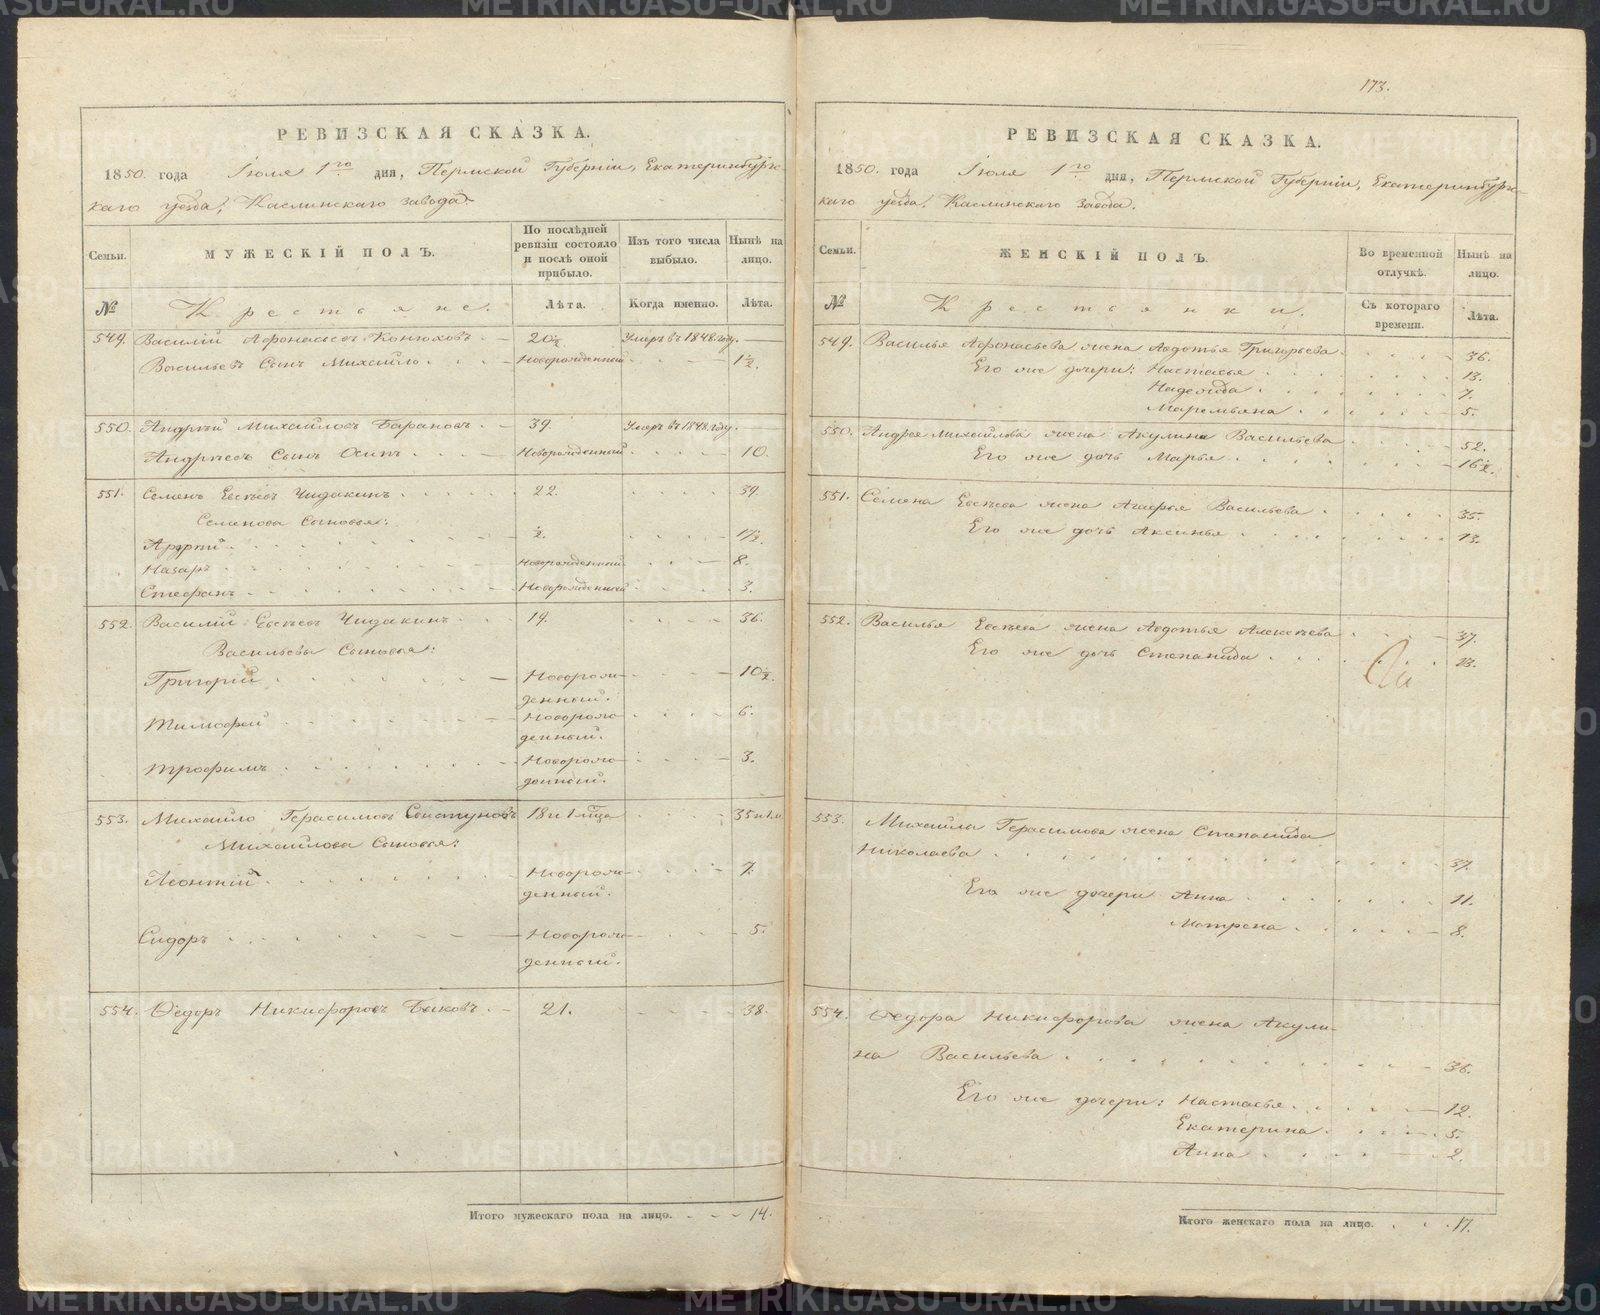 173.
РЕВИЗСКАЯ СКАЗКА.
1850. года Іюля 1го дня, Пермской Губерніи, Екатеринбургс-
каго уѣзда, Каслинскаго завода.
Семьи. МУЖЕСКІЙ ПОЛЪ. По послѣдней ревизіи состояло и послѣ оной прибыло. Изъ того числа выбыло. Нынѣ на лицо.
№ Крестьяне. Лѣта. Когда именно. Лѣта.
549. Василій Афонасьевъ Конюховъ. 20½ Умеръ въ 1848 году.
Васильевъ Сынъ Михайло. Новорожденный 1½.
550. Андрѣй Михайловъ Барановъ. 39. Умеръ въ 1848 году.
Андрѣевъ Сынъ Осипъ. Новорожденный. 10.
551. Семенъ Евсѣевъ Чидакинъ. 22. 39.
Семенова Сыновья:
½. 17½.
Назаръ. Новорожденный. 8.
Стефанъ. Новорожденный. 3.
552. Василій Евсѣевъ Чидакинъ. 19. 36.
Васильевы Сыновья:
Григорій. Новорож-
денный. 10½.
Тимофей. Новорож-
денный. 6.
Трофимъ. Новорож-
денный. 3.
553. Михайло Герасимовъ Свистуновъ 18 и 1 м-ца 35 и 1 м
Михайлова Сыновья:
Леонтій. Новорож-
денный. 7.
Сидоръ. Новорож-
денный. 5.
554. Ѳедоръ Никифоровъ Быковъ. 21. 38.
Итого мужескаго пола на лицо. 14.
РЕВИЗСКАЯ СКАЗКА.
1850. года Іюля 1го дня, Пермской Губерніи, Екатеринбургс-
каго уѣзда, Каслинскаго завода.
Семьи. ЖЕНСКІЙ ПОЛЪ. Во временной отлучкѣ. Нынѣ на лицо.
№ Крестьянки. Съ котораго времени. Лѣта.
549. Василья Афонасьева жена Авдотья Григорьева. 36.
Его же дочери: Настасья. 13.
Надежда. 7.
Маремьяна. 5.
550. Андрея Михайлова жена Акулина Васильева 52.
Его же дочь Марья. 16½.
551. Семена Евсѣева жена Агафья Васильева. 35.
Его же дочь Аксинья. 13.
552. Василья Евсѣева жена Авдотья Алексѣева 37.
Его же дочь Степанида. 13.
553. Михайла Герасимова жена Степанида
Николаева. 37.
Его же дочери Анна. 11.
Матрена. 8.
554. Ѳедора Никифорова жена Акули-
на Васильева. 36.
Его же дочери: Настасья. 12.
Екатерина. 5.
Анна. 2.
Итого женскаго пола на лицо. 17.
METRIKI.GASO-URAL.RU